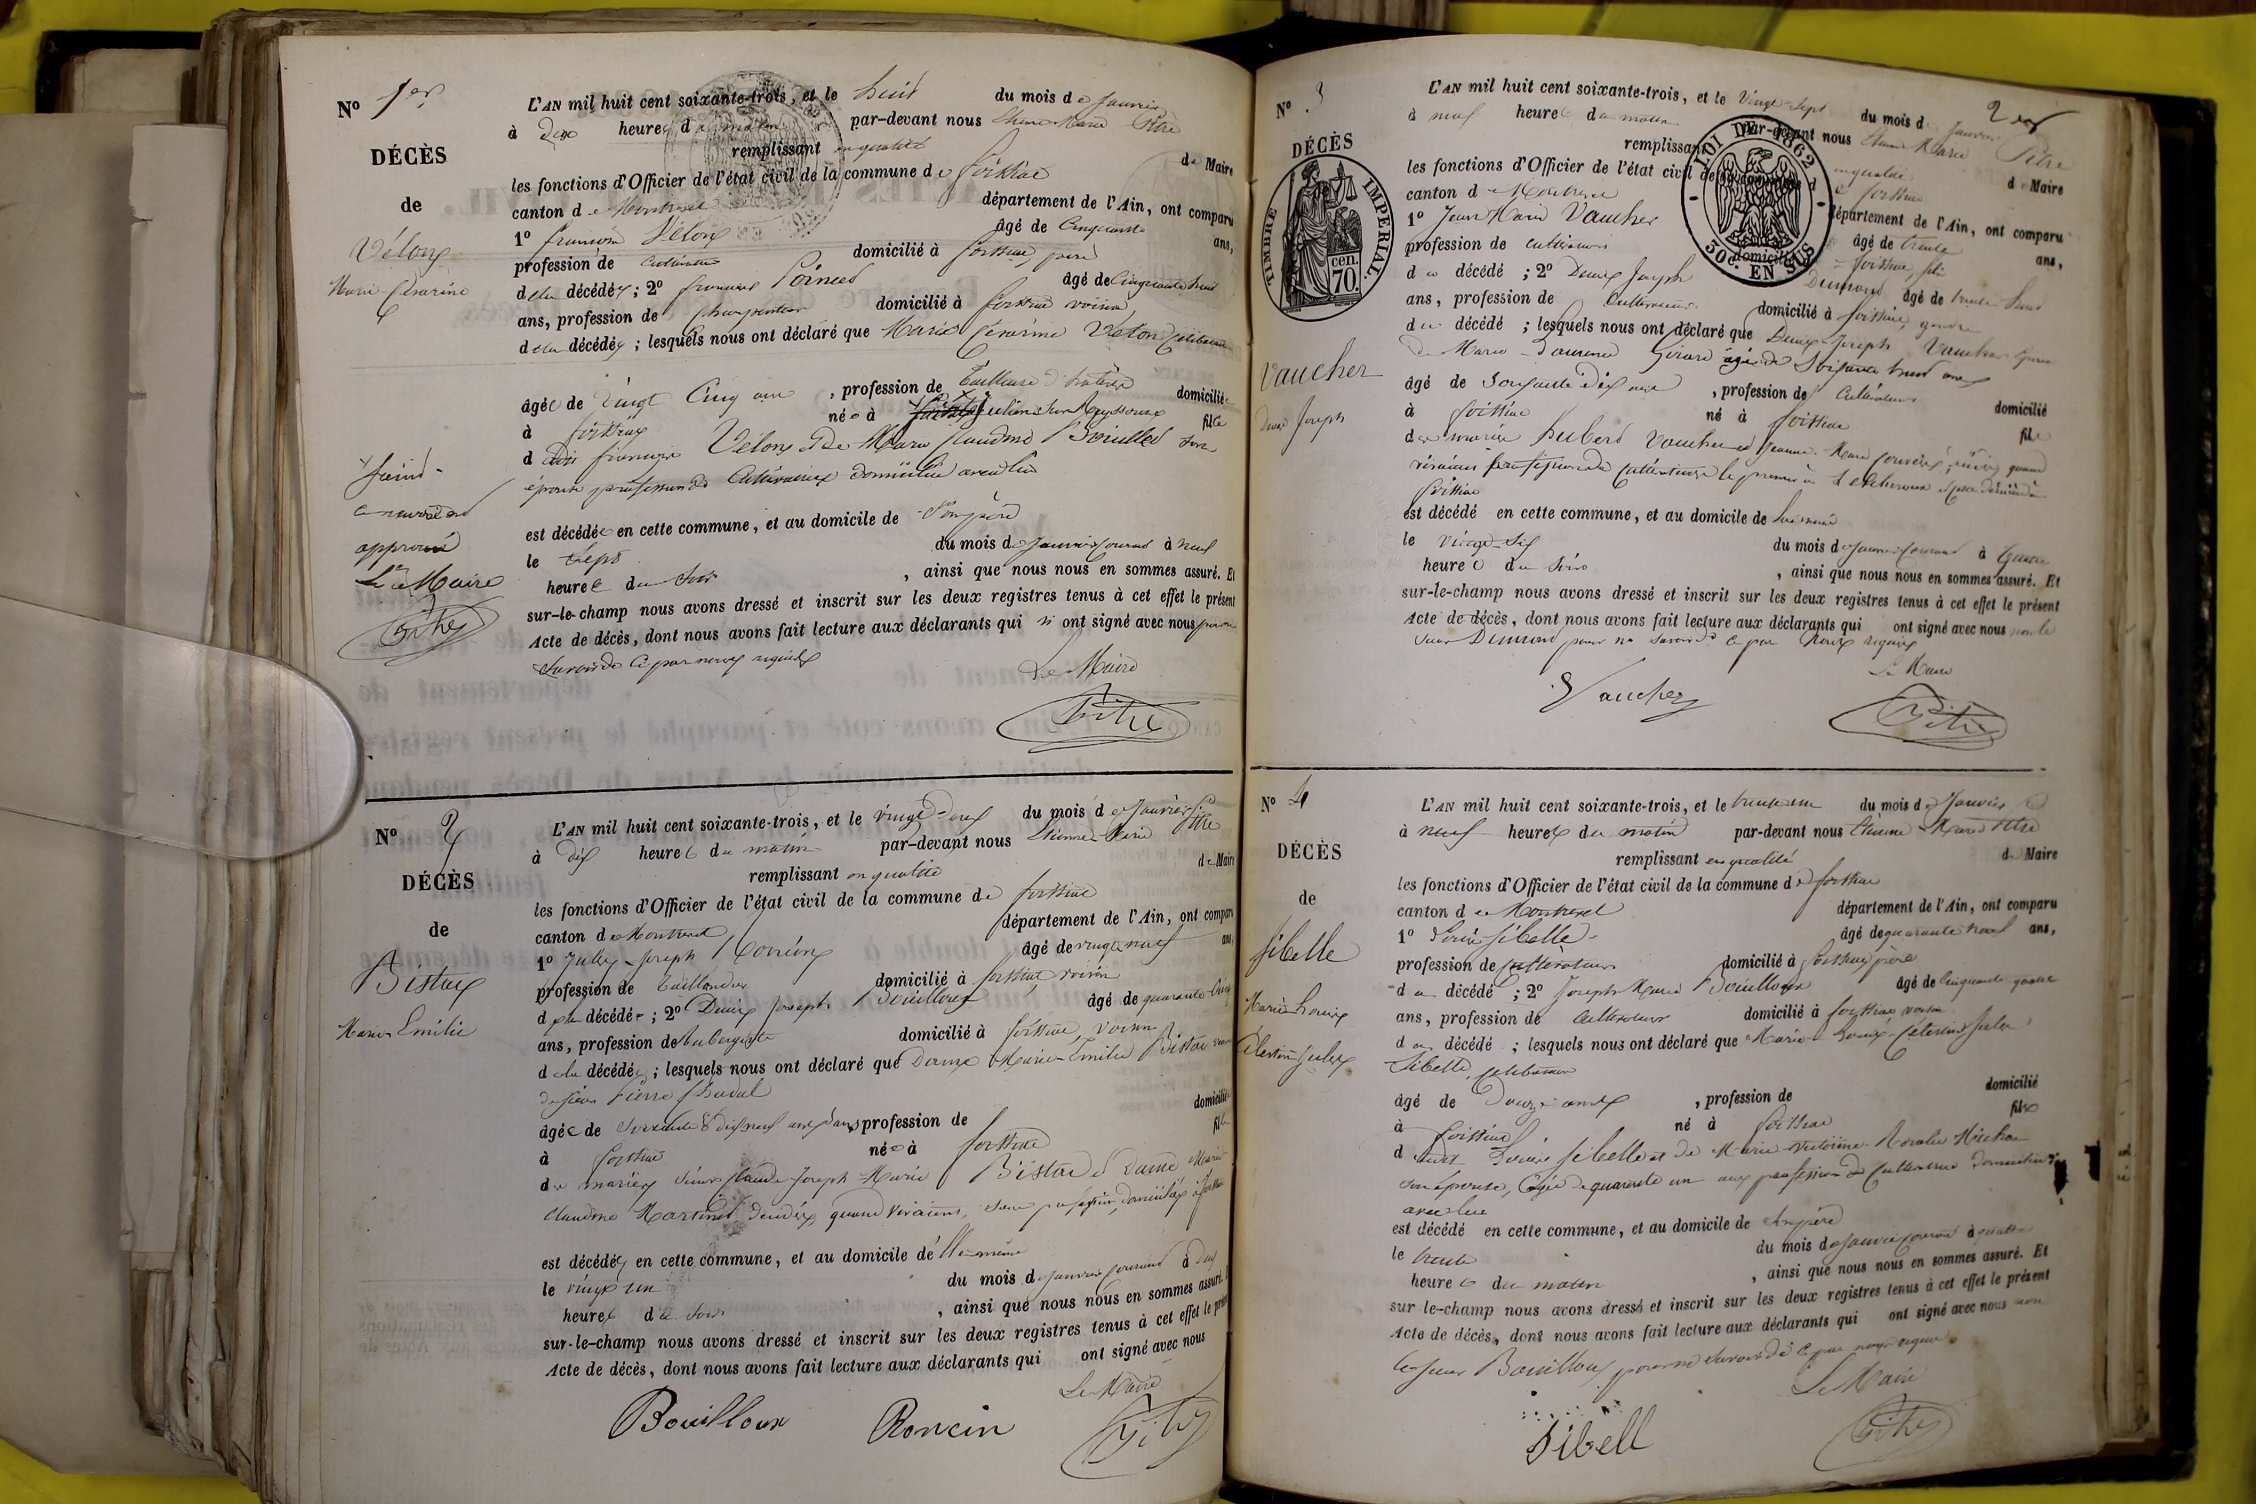 Nº 1er
DÉCÈS
de
Vélon
Marie Césarine
L'AN mil huit cent soixante-trois, et le huit du mois de Janvier
à dix heures du matin par-devant nous Etienne Marie Pitre
remplissant en qualité de Maire
les fonctions d'Officier de l'état civil de la commune de Foissiat
canton de Montrevel département de l'Ain, ont comparu
1º François Vélon âgé de Cinquante ans,
profession de Cultivateur domicilié à Foissiat, père
de la décédée ; 2º François Poincet âgé de Cinquante huit
ans, profession de Charpentier domicilié à Foissiat voisin
de la décédée ; lesquels nous ont déclaré que Marie Césarine Vélon Célibataire
âgée de Vingt Cinq ans , profession de Tailleuse d'habits domiciliée
à Foissiat née à St Julien sur Reyssouze fille
dudit François Vélon et de Marie Claudine Bouilloux son
épouse profession de Cultivateurs domiciliée avec lui
est décédée en cette commune, et au domicile de Son père
le Sept du mois de Janvier courant à neuf
heures du Soir , ainsi que nous nous en sommes assuré. Et
sur-le-champ nous avons dressé et inscrit sur les deux registres tenus à cet effet le présent
Acte de décès, dont nous avons fait lecture aux déclarants qui n' ont signé avec nous pour ne
Savoir de ce par nous requis
approuvé
Le Maire
Pitre
Le Maire
Pitre
Nº 2
DÉCÈS
de
Bistac
Marie Emilie
L'AN mil huit cent soixante-trois, et le vingt-deux du mois de Janvier
à dix heures du matin par-devant nous Etienne-Marie Pitre
remplissant en qualité de Maire
les fonctions d'Officier de l'état civil de la commune de Foissiat
canton de Montrevel département de l'Ain, ont comparu
1º Jules-Joseph Roncin âgé de vingt neuf ans,
profession de Taillandier domicilié à Foissiat voisin
de la décédée ; 2º Denis Joseph Bouilloux âgé de quarante-Cinq
ans, profession de Aubergiste domicilié à Foissiat, voisin
de la décédée ; lesquels nous ont déclaré que Dame Marie-Emilie Bistac veuve
de Sieur Pierre
âgée de Soixante & dix neuf ans , profession de domiciliée
à Foissiat née à Foissiat fille
de mariés Sieur Claude Joseph Marie Bistac & Dame Marie
Claudine Martinet décédés, quand vivaient, sans profession, domiciliés à Foissiat
est décédée en cette commune, et au domicile d'Elle-même
le vingt un du mois de Janvier courant à dix
heures du Soir , ainsi que nous nous en sommes assuré. Et
sur-le-champ nous avons dressé et inscrit sur les deux registres tenus à cet effet le présent
Acte de décès, dont nous avons fait lecture aux déclarants qui ont signé avec nous
Le Maire
Bouilloux Roncin Pitre
2
Nº 3
DÉCÈS
TIMBRE IMPERIAL.
70. cen.
LOI DE 1862
30c. EN SUS
Vaucher
Denis Joseph
L'AN mil huit cent soixante-trois, et le Vingt-Sept du mois de Janvier
à neuf heures du matin par-devant nous Etienne Marie Pitre
remplissant en qualité de Maire
les fonctions d'Officier de l'état civil de la commune de Foissiat
canton de Montrevel département de l'Ain, ont comparu
1º Jean Marie Vaucher âgé de trente ans,
profession de Cultivateur domicilié à Foissiat, fils
du décédé ; 2º Denis Joseph Dumont âgé de trente huit
ans, profession de Cultivateur domicilié à Foissiat, gendre
du décédé ; lesquels nous ont déclaré que Denis-Joseph Vaucher époux
de Marie-Laurence Girard âgée de Soixante huit ans
âgé de Soixante dix ans , profession de Cultivateur domicilié
à Foissiat né à Foissiat fils
de mariés Hubert Vaucher et Jeanne-Marie quand
vivaient profession de Cultivateurs le premier à
Foissiat
est décédé en cette commune, et au domicile de lui même
le Vingt-Six du mois de Janvier courant à
heure du Soir , ainsi que nous nous en sommes assuré. Et
sur-le-champ nous avons dressé et inscrit sur les deux registres tenus à cet effet le présent
Acte de décès, dont nous avons fait lecture aux déclarants qui ont signé avec nous non le
Sieur Dumont pour ne savoir de ce par nous requis
Le Maire
Vaucher Pitre
Nº 4
DÉCÈS
de
Sibelle
Marie Louis
Célestin Jules
L'AN mil huit cent soixante-trois, et le trente un du mois de Janvier
à neuf heures du matin par-devant nous Etienne-Marie Pitre
remplissant en qualité de Maire
les fonctions d'Officier de l'état civil de la commune de Foissiat
canton de Montrevel département de l'Ain, ont comparu
1º Louis Sibelle âgé de quarante neuf ans,
profession de Cultivateur domicilié à Foissiat, père
du décédé ; 2º Joseph Marie Bouilloux âgé de Cinquante quatre
ans, profession de Cultivateur domicilié à Foissiat voisin
du décédé ; lesquels nous ont déclaré que Marie-Louis-Célestin Jules
Sibelle, Célibataire
âgé de Douze ans , profession de domicilié
à Foissiat né à Foissiat fils
dudit Louis Sibelle et de Marie-Victorine-Rosalie Michon
son épouse, âgée de quarante un ans profession de Cultivatrice domiciliée
avec lui
est décédé en cette commune, et au domicile de Son père
le trente du mois de Janvier courant à quatre
heures du matin , ainsi que nous nous en sommes assuré. Et
sur-le-champ nous avons dressé et inscrit sur les deux registres tenus à cet effet le présent
Acte de décès, dont nous avons fait lecture aux déclarants qui ont signé avec nous non
le sieur Bouilloux pour ne savoir de ce par nous requis
Le Maire
Sibell Pitre